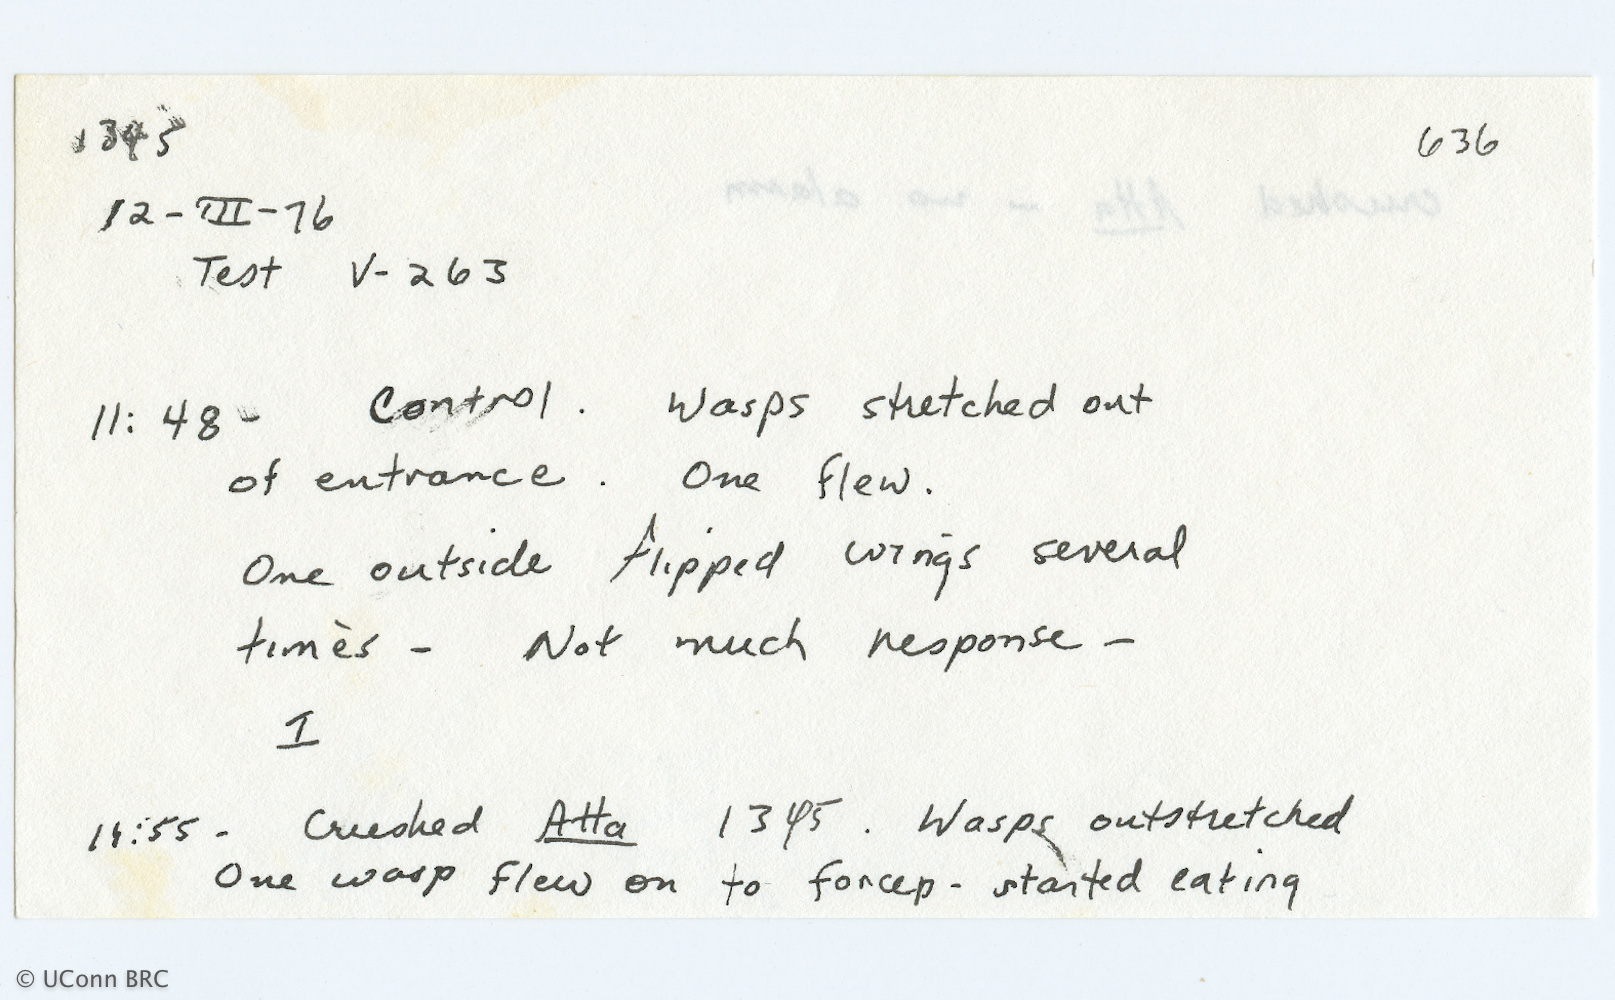 1345
636
12-III-76
Test V-263
11:48- Control. Wasps stretched out
of entrance. One flew.
One outside flipped wings several
times - Not much response -
I
11:55- Crushed Atta 1345. Wasps outstretched
One wasp flew on to forcep- started eating
crushed Atta - no alarm
© UConn BRC